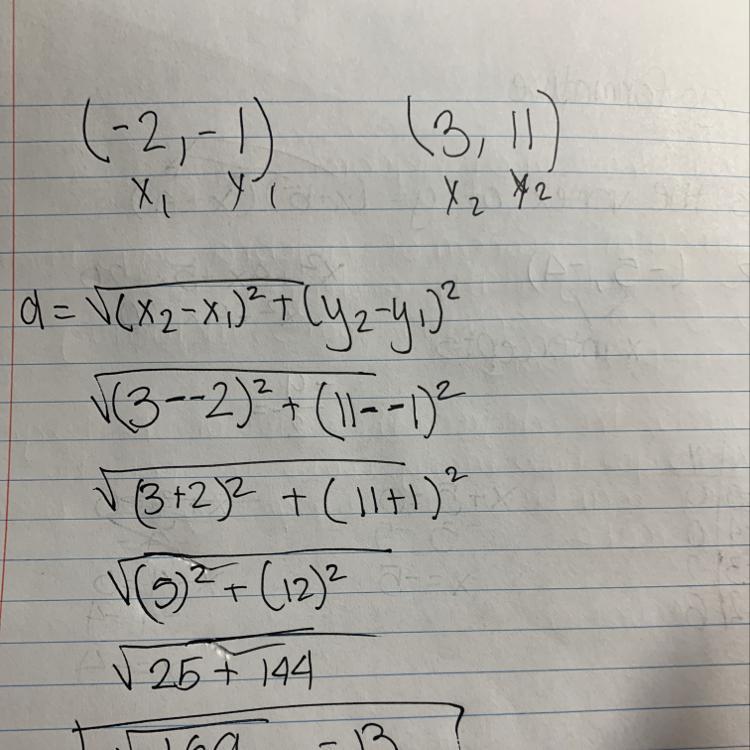 (-2, -1) (3, 11)
x₁ y₁ x₂ y₂
d = √(x₂-x₁)² + (y₂-y₁)²
√(3--2)² + (11--1)²
√(3+2)² + (11+1)²
√(5)² + (12)²
√25 + 144
√169 = 13